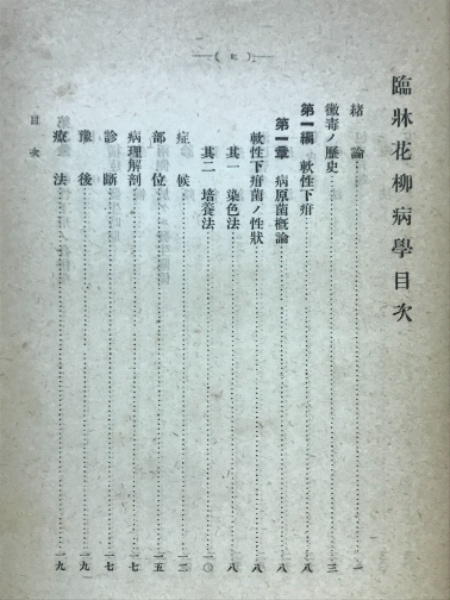 臨牀花柳病學目次
緒論……一
黴毒ノ歷史……三
第一編 軟性下疳……八
第一章 病原菌概論……八
軟性下疳菌ノ性狀……八
其一 染色法……八
其二 培養法……一〇
症候……一二
部位……一五
病理解剖……一七
診斷……一七
豫後……一九
療法……一九
目次